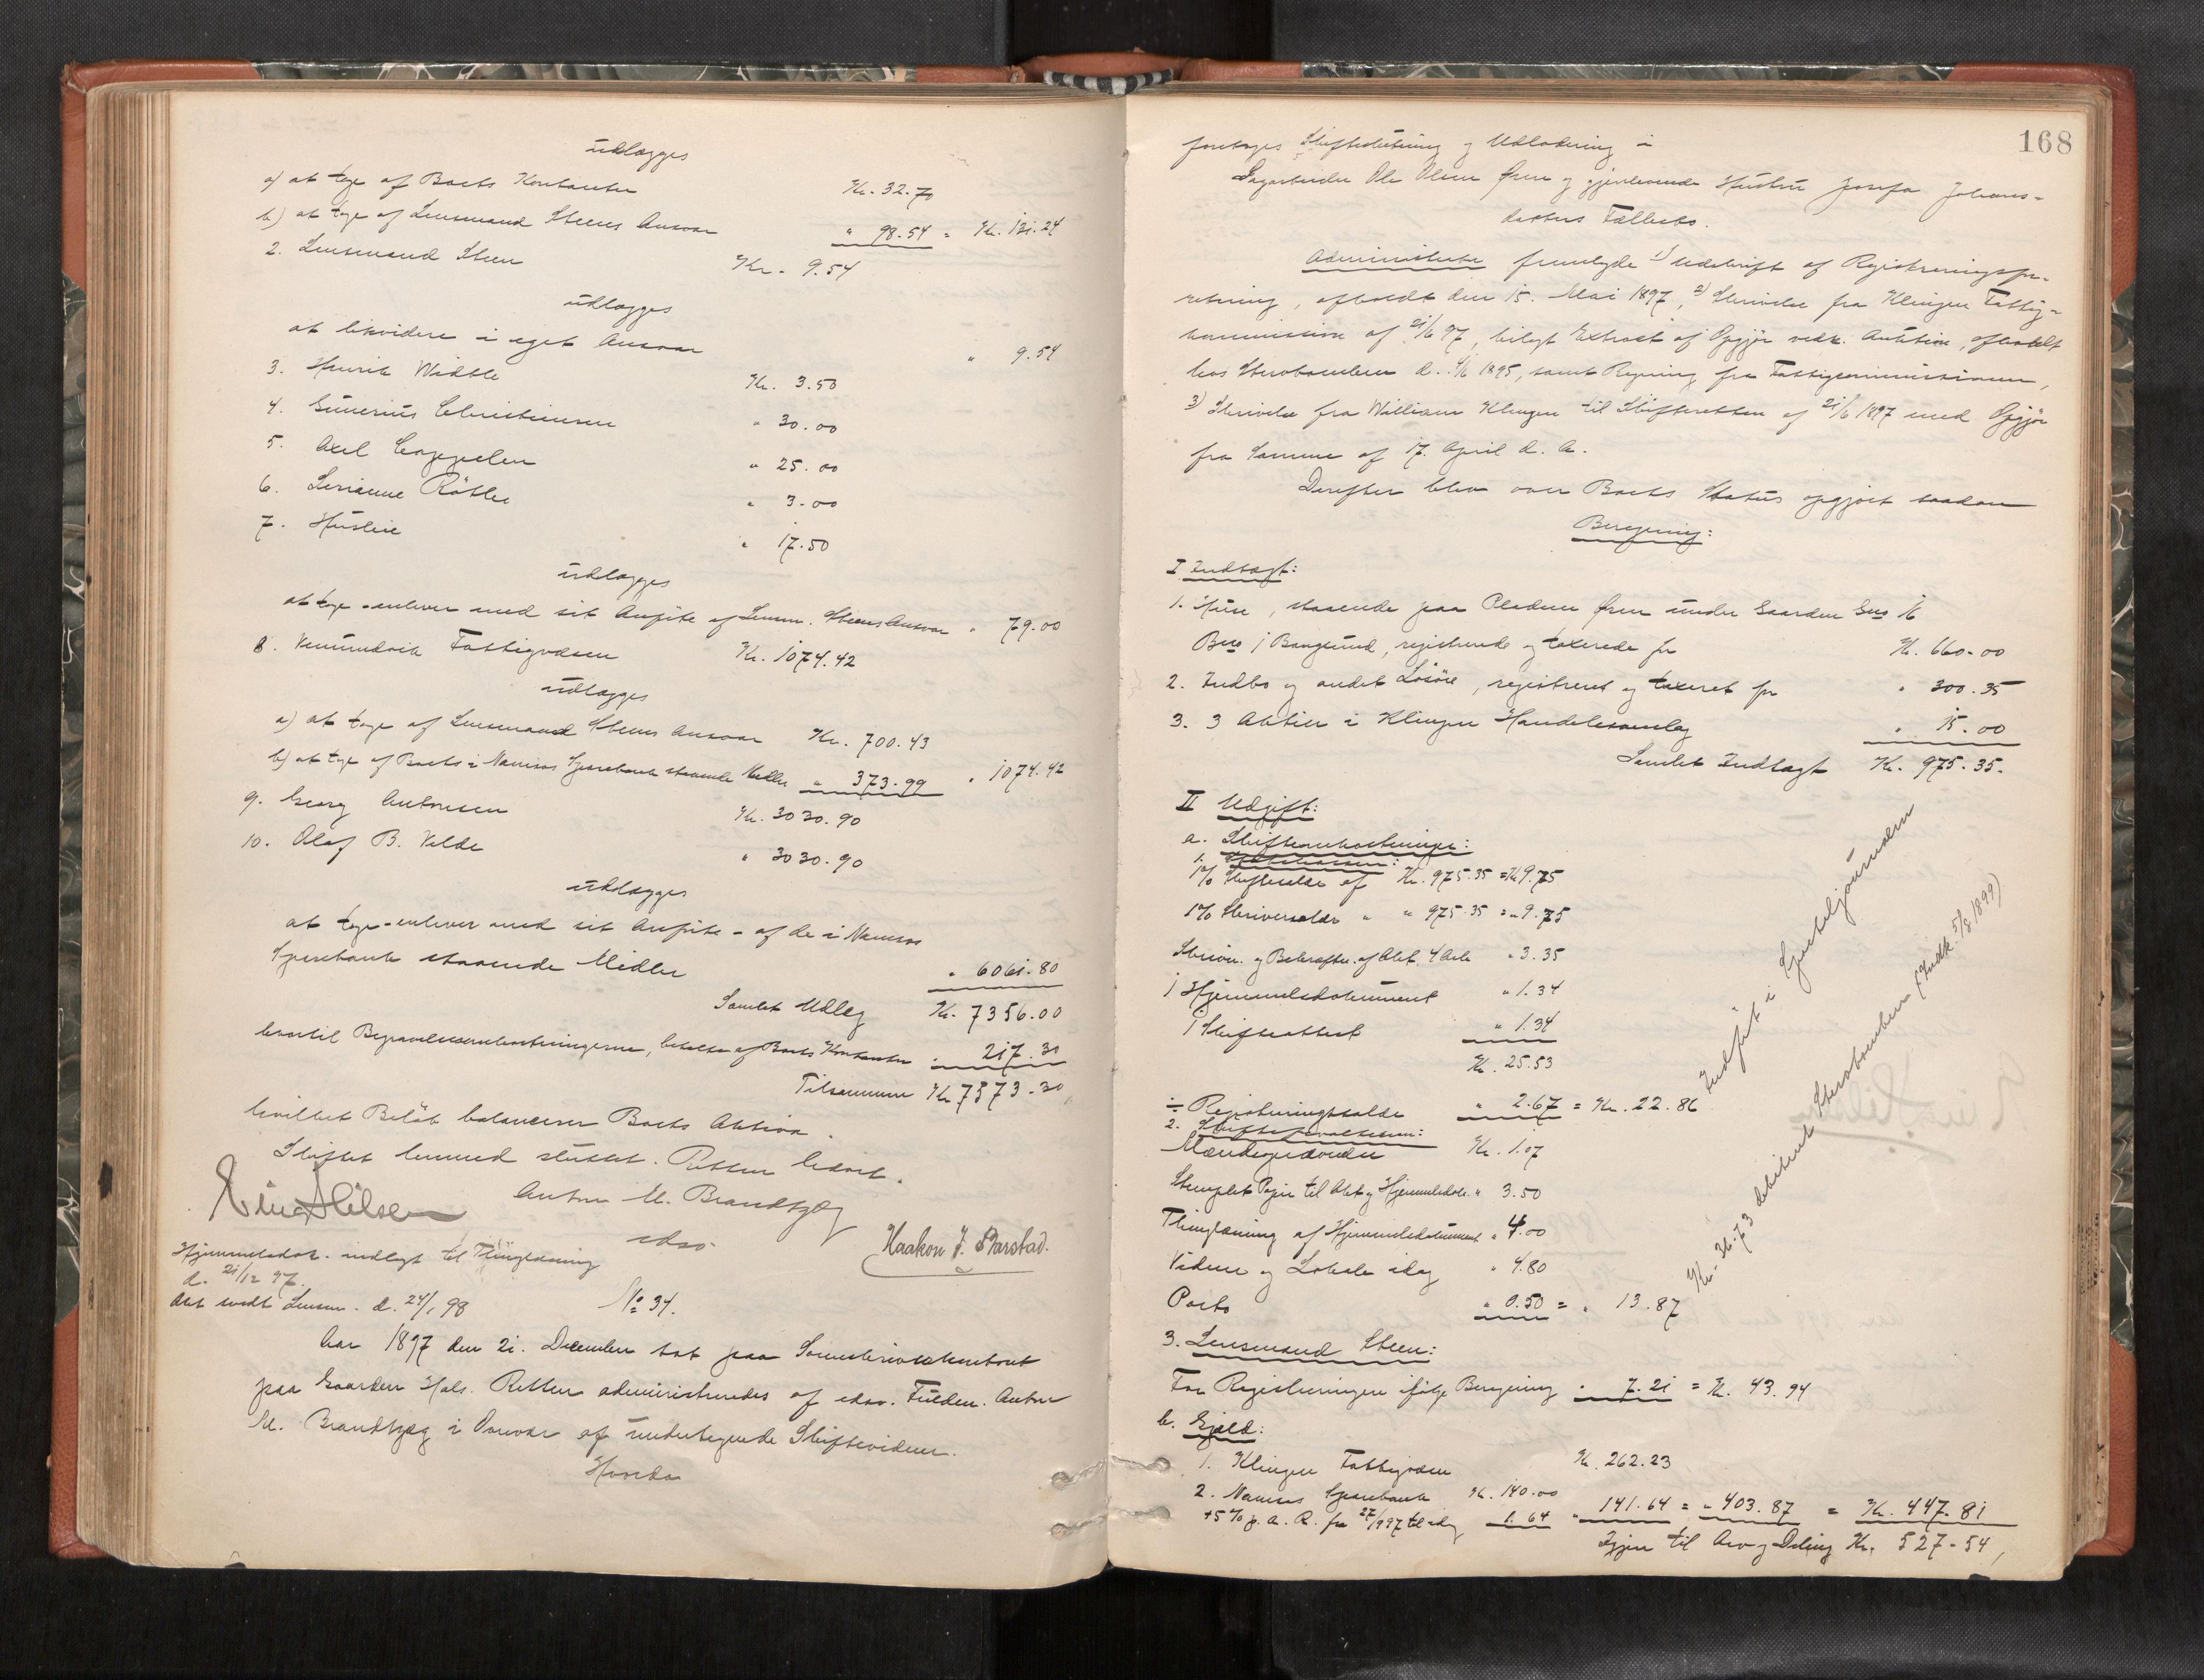 udlægges
a) at tage af Boets Kontanter Kr. 32.70
b) at tage af Lensmand Steens Ansvar " 98.54 = Kr. 131.24
2. Lensmand Steen Kr. 9.54
udlægges
at likvidere i eget Ansvar " 9.54
3. Henrik Kr. 3.50
4. Christiansen " 30.00
5. Axel Coppelen " 25.00
6. " 3.00
7. Husleie " 17.50
udlægges
at tage - enhver med sit Anførte af Lensm. Steens Ansvar " 79.00
8. Vemundvik Fattigvæsen Kr. 1074.42
udlægges
a) at tage af Lensmand Steens Ansvar Kr. 700.43
b) at tage af Boets i Namsos Sparebank staaende Midler " 373.99 " 1074.42
9. Georg Antonsen Kr. 3030.90
10. Olaf B. Velde " 3030.90
udlægges
at tage - enhver med sit Anførte - af de i Namsos
Sparebank staaende Midler " 6061.80
Samlet Udlæg Kr. 7356.00
hvortil Begravelsesomkostningerne, betalte af Boets Kontanter " 217.30
Tilsammen Kr. 7573.30,
hvilket Beløb balancerer Boets Aktiva.
Skiftet hermed sluttet. Retten hævet.
Anton M. Brandtzæg
edsv.
Haakon J. Barstad.
Hjemmelsdok. indlagt til Thinglæsning
d. 21/12 97.
Akt sendt Lensm. d. 24/1 98
No 34.
Aar 1897 den 21. December sat paa Sorenskriverkontoret
paa Gaarden Hals. Retten administreredes af edsv. Fuldm. Anton
M. Brandtzæg i Overvær af undertegnede Skiftevidner.
Hvorda
168
foretages Skifteslutning og Udlodning i
Ole Olsen Øren og gjenlevende Hustru Josefa Johans-
datters Fællesbo.
Administrator fremlagde 1) Udskrift af Registreringsfor-
retning, afholdt den 15. Mai 1897, 2) Skrivelse fra Klingen Fattig-
kommission af 21/6 97, bilagt Extract af Opgjør vedk. Auktion, afholdt
hos Sterboenken d. 4/6 1895, samt Regning fra Fattigcommissionen,
3) Skrivelse fra William Klingen til Skifteretten af 21/6 1897 med Opgjør
fra Samme af 17. April d. A.
Derefter blev over Boets Status opgjort saadan
Beregning:
I Indtægt:
1. Huse, staaende paa Pladsen Øren under Gaarden Gns 16
Bns 1 Bangsund, registrerede og taxerede for Kr. 660.00
2. Indbo og andet Løsøre, registreret og taxeret for " 300.35
3. 3 Aktier i Klingen Handelssamlag " 15.00
Samlet Indtægt Kr. 975.35.
II Udgift:
a. Skifteomkostninger:
1.
1% Skiftesalær af Kr. 975.35 = Kr. 9.75
1% Skriversalær " " 975.35 = " 9.75
Skriv. og Bekræft. af Akt. 4 Ark " 3.35
1 Hjemmelsdokument " 1.34
1 Skifteattest " 1.34
Kr. 25.53
÷ Registreringssalær " 2.67 = Kr. 22.86
2. Skifteforvalteren:
Kr. 1.07
Stemplet Papir til Akt og Hjemmelsdok. " 3.50
Thinglæsning af Hjemmelsdokument " 4.00
Vidner og Lokale idag " 4.80
Porto " 0.50 = " 13.87
3. Lensmand Steen:
For Registreringen ifølge Beregning " 7.21 = Kr. 43.94
b. Gjæld:
1. Klingen Fattigvæsen Kr. 262.23
2. Namsos Sparebank Kr. 140.00
+ 5% p. A. R. fra 27/9 97 til idag 1.64 " 141.64 = " 403.87 = Kr. 447.81
Igjen til Arv og Deling Kr. 527.54,
Indført i Sporteljournalen
Kr. 36.73 debiteret Sterboenken (Indk. 5/8 1899)